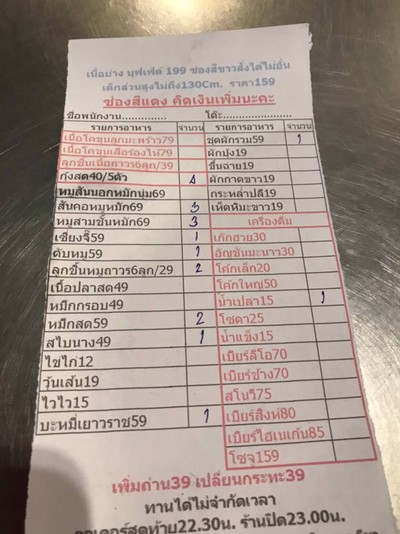 เนื้อย่าง บุฟเฟ่ต์ 199 ช่องสีขาวสั่งได้ไม่อั้น
เด็กส่วนสูงไม่ถึง130Cm. ราคา159
ช่องสีแดง คิดเงินเพิ่มนะคะ
ชื่อพนักงาน.............. โต๊ะ..................
รายการอาหาร จำนวน รายการอาหาร จำนวน
เนื้อโคขุนลูกมะพร้าว79 ชุดผักรวม59 1
เนื้อโคขุนเสือร้องไห้79 ผักบุ้ง19
ลูกชิ้นเนื้อถาวร6ลูก/39 ขึ้นฉ่าย19
กุ้งสด40/5ตัว ผักกาดขาว19
หมูสันนอกหมักนุ่ม69 กระหล่ำปลี19
สันคอหมูหมัก69 3 เห็ดหิมะขาว19
หมูสามชั้นหมัก69 3 เครื่องดื่ม
เซียงจี๊59 1 เก๊กฮวย30
ตับหมู59 1 อัญชันมะนาว30
ลูกชิ้นหมูถาวร6ลูก/29 2 โค้กเล็ก20
เนื้อปลาสด49 โค้กใหญ่50
หมึกกรอบ49 น้ำเปล่า15 1
หมึกสด59 2 โซดา25
สไบนาง49 1 น้ำแข็ง15
ไข่ไก่12 เบียร์ลีโอ70
วุ้นเส้น19 เบียร์ช้าง70
ไวไว15 สโนวี่75
บะหมี่เยาวราช59 1 เบียร์สิงห์80
เบียร์ไฮเนเก้น85
โซจู159
เพิ่มถ่าน39 เปลี่ยนกระทะ39
ทานได้ไม่จำกัดเวลา
ออเดอร์สุดท้าย22.30น. ร้านปิด23.00น.